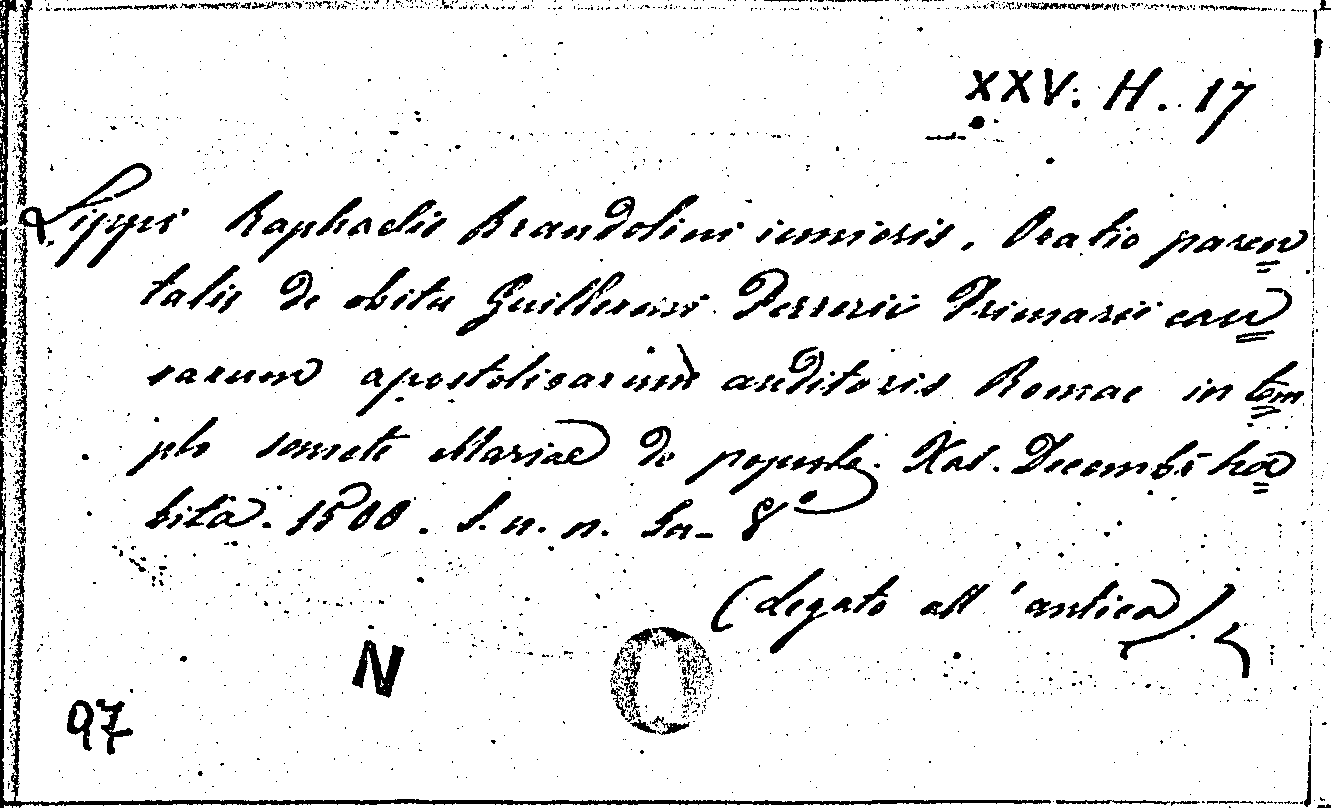 XXV. H. 17
Lippi Raphaelis Brandolini iunioris. Oratio paren
talis de obitu Guillermi Perrerii Primarii cau
sarum apostolicarum auditoris Romae in tem
plo sancte Mariae de populo. Kal. Decembs ha
bita. 1500. s. n. n. in 8°
(legato all'antica)
N
97